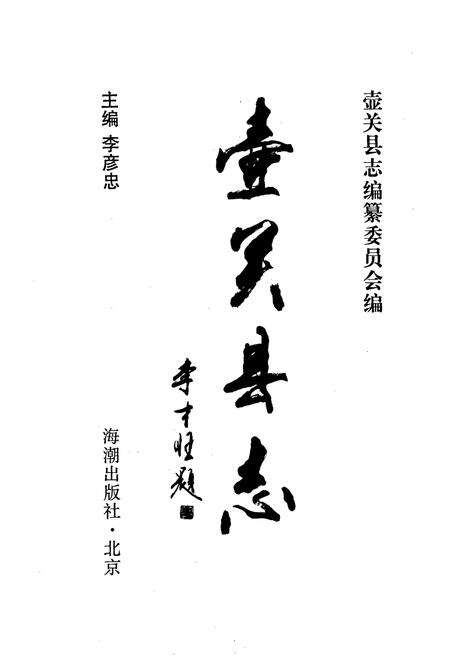 壶关县志编纂委员会编
壶关县志
李才旺题
主编 李彦忠
海潮出版社·北京